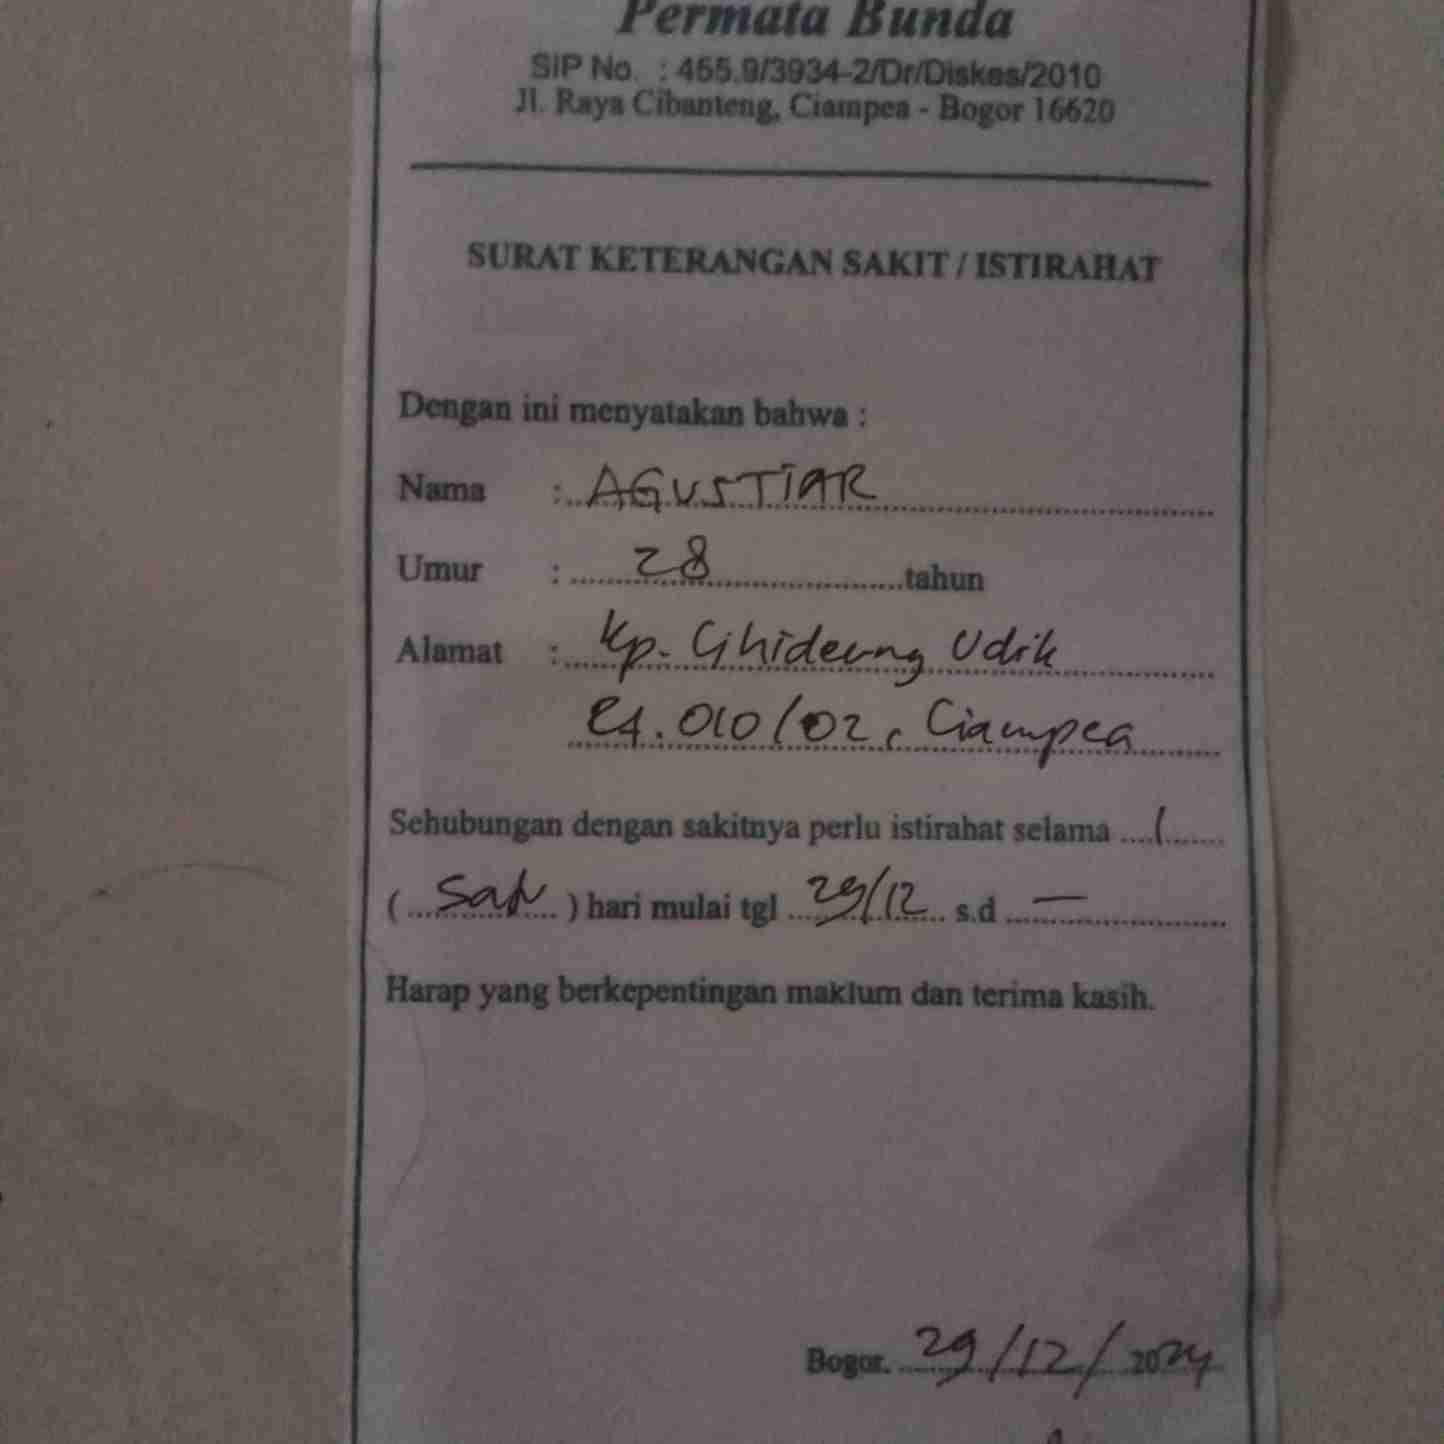 Permata Bunda
SIP No. : 455.9/3934-2/Dr/Diskes/2010
Jl. Raya Cibanteng, Ciampea - Bogor 16620
SURAT KETERANGAN SAKIT / ISTIRAHAT
Dengan ini menyatakan bahwa :
Nama : AGUSTIAR
Umur : 28 tahun
Alamat : Kp. Cihideung Udik
Rt. 010/02, Ciampea
Sehubungan dengan sakitnya perlu istirahat selama 1
( Satu ) hari mulai tgl 29/12 s.d —
Harap yang berkepentingan maklum dan terima kasih.
Bogor. 29/12/2024